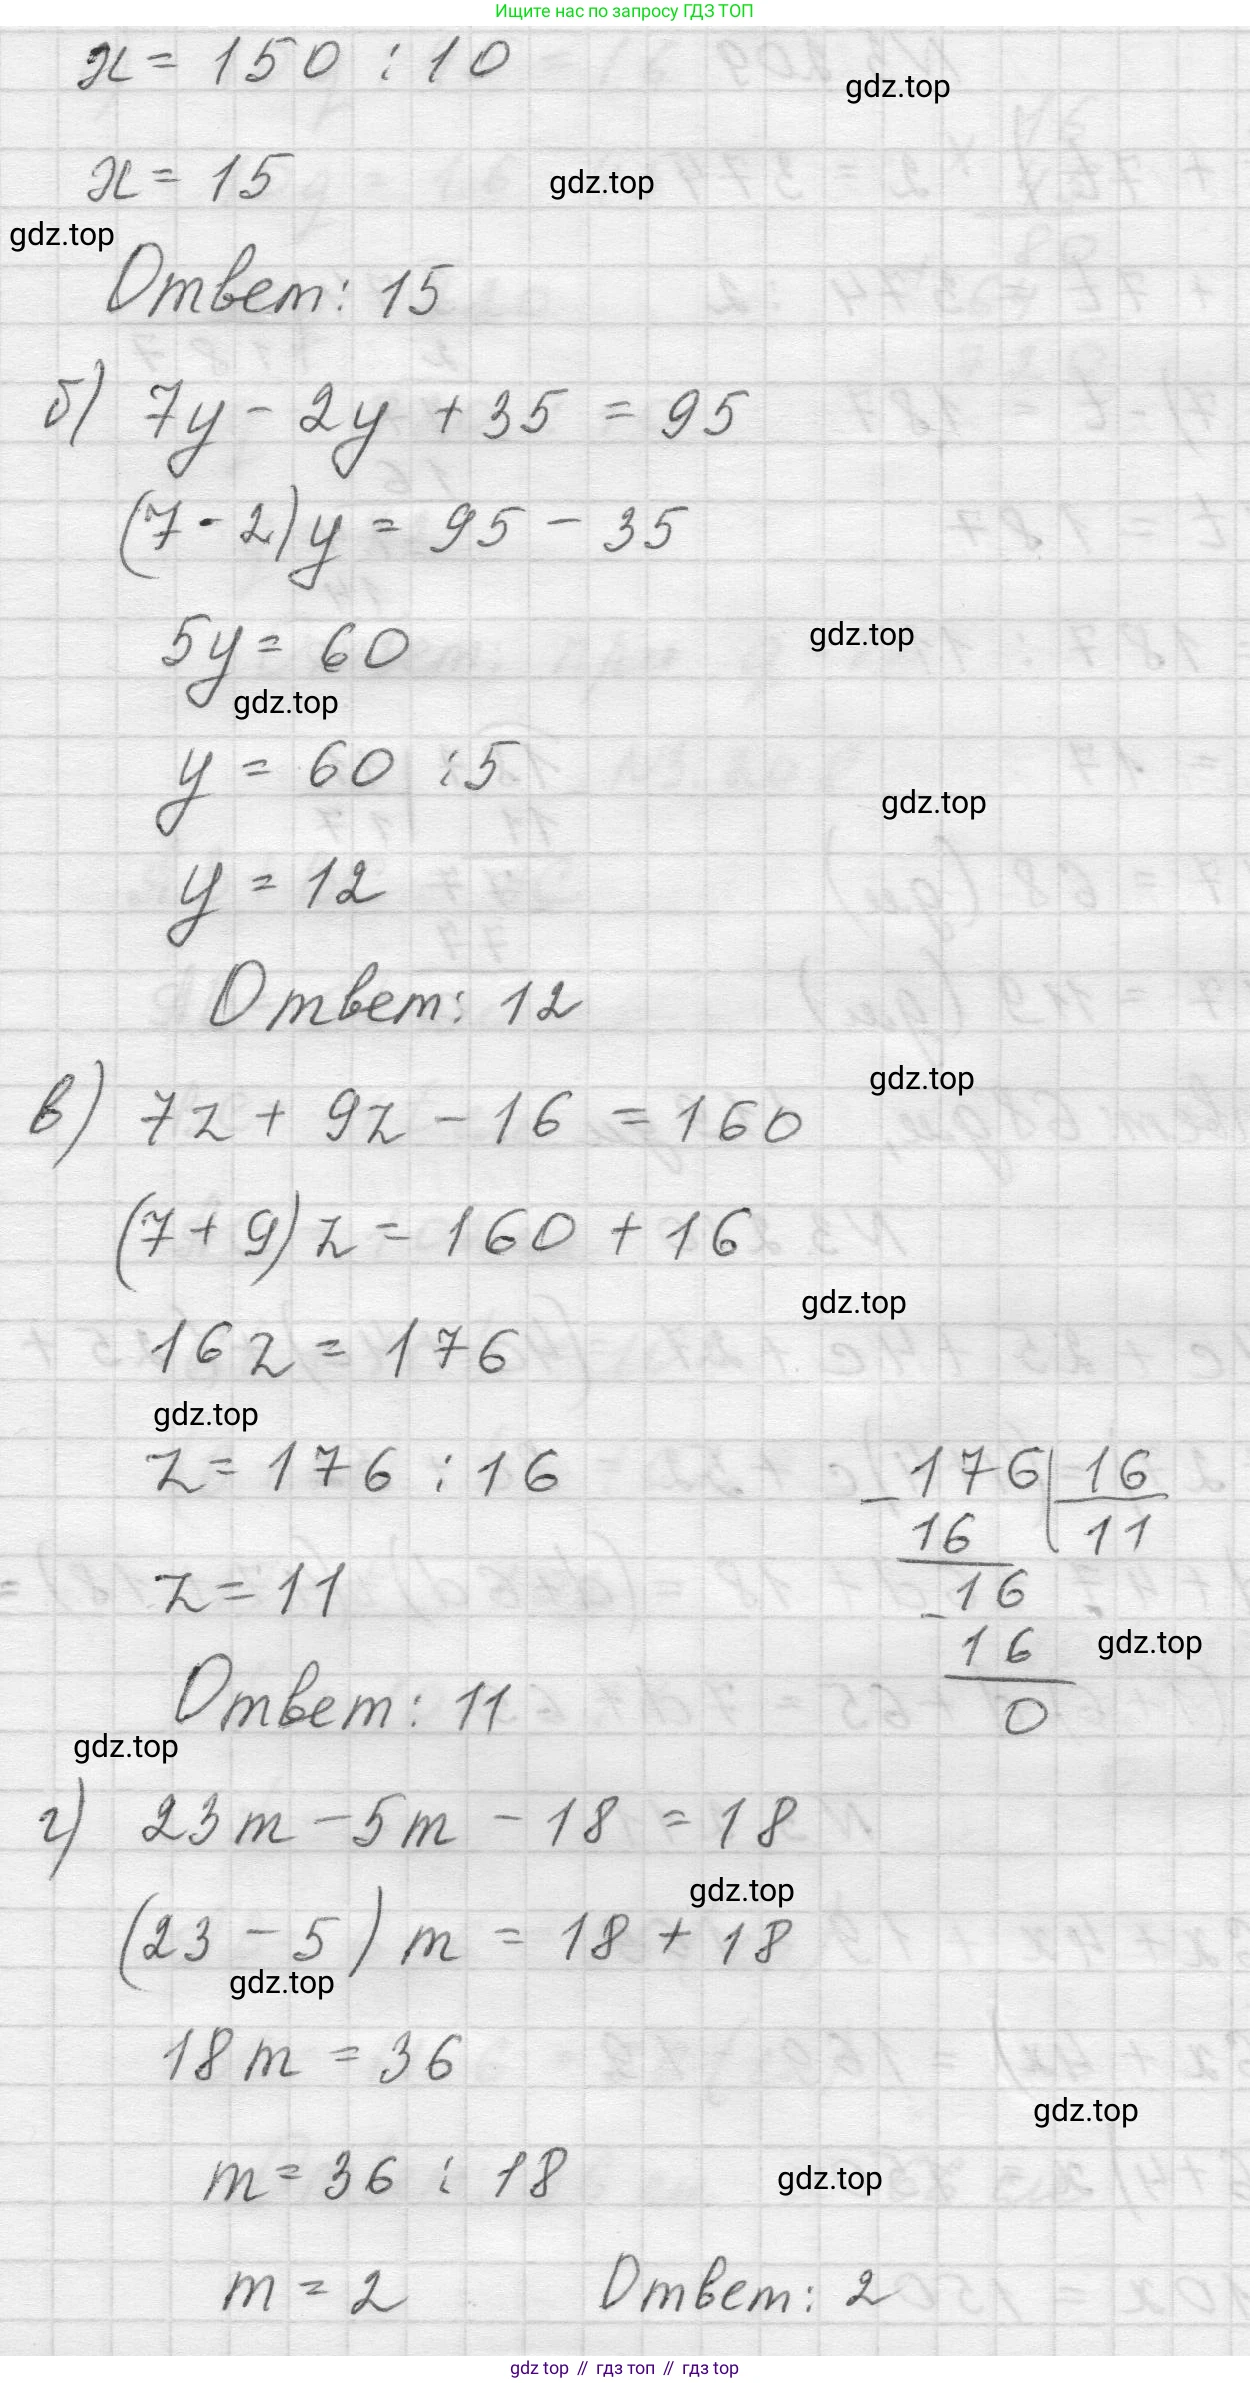 Ищите нас по запросу ГДЗ ТОП
x = 150 : 10
gdz.top
x = 15
gdz.top
gdz.top
Ответ: 15
б) 7y - 2y + 35 = 95
(7 - 2)y = 95 - 35
5y = 60
gdz.top
gdz.top
y = 60 : 5
gdz.top
y = 12
Ответ: 12
в) 7z + 9z - 16 = 160
gdz.top
(7 + 9)z = 160 + 16
gdz.top
16z = 176
gdz.top
z = 176 : 16
176 | 16
- 16 | 11
z = 11
16
- 16
gdz.top
0
Ответ: 11
gdz.top
г) 23m - 5m - 18 = 18
gdz.top
(23 - 5)m = 18 + 18
gdz.top
18m = 36
gdz.top
m = 36 : 18
gdz.top
m = 2 Ответ: 2
gdz top // гдз топ // гдз top